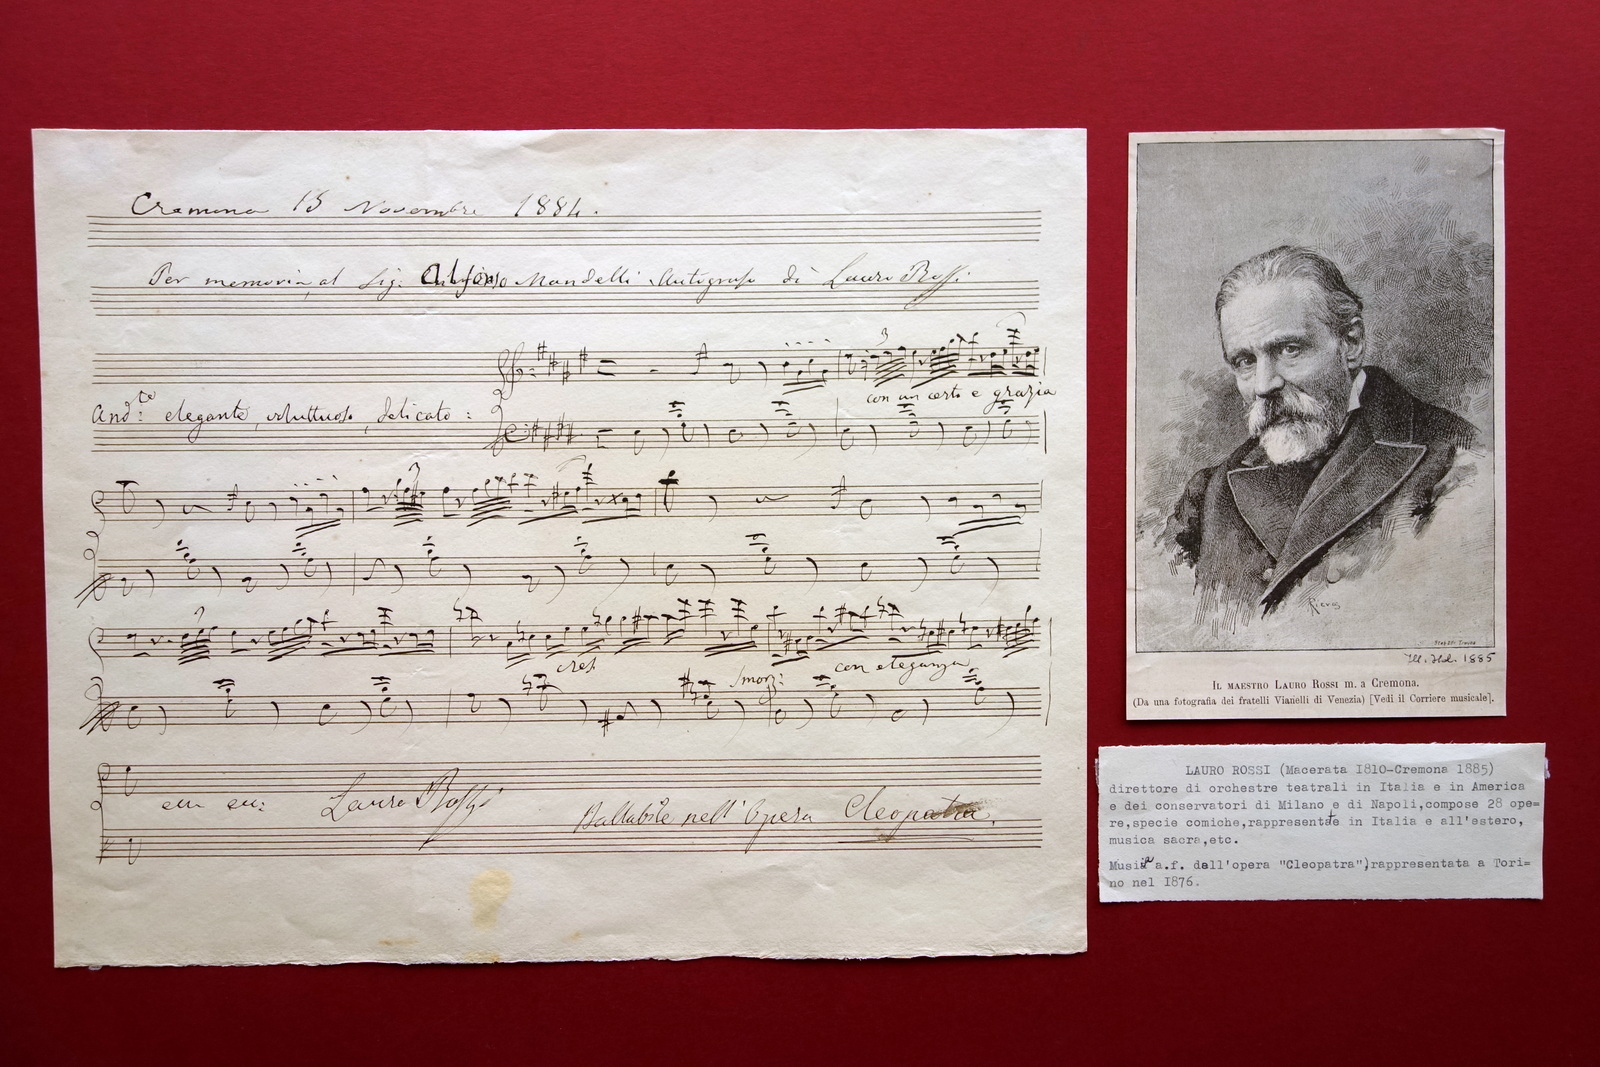 Cremona 15 Novembre 1884.
Per memoria al Sig: Alfonso Mandelli Autografo di Lauro Rossi
3
con un certo e grazia
And.te: elegante, voluttuoso, delicato:
3
3
cres
con eleganza
smorz:
Lauro Rossi
Ballabile nell'Opera Cleopatra.
Ill. Ital. 1885
IL MAESTRO LAURO ROSSI m. a Cremona.
(Da una fotografia dei fratelli Vianelli di Venezia) [Vedi il Corriere musicale].
LAURO ROSSI (Macerata I8I0-Cremona I885)
direttore di orchestre teatrali in Italia e in America
e dei conservatori di Milano e di Napoli,compose 28 ope=
re,specie comiche,rappresentate in Italia e all'estero,
musica sacra,etc.
Musica a.f. dell'opera "Cleopatra",rappresentata a Tori=
no nel I876.